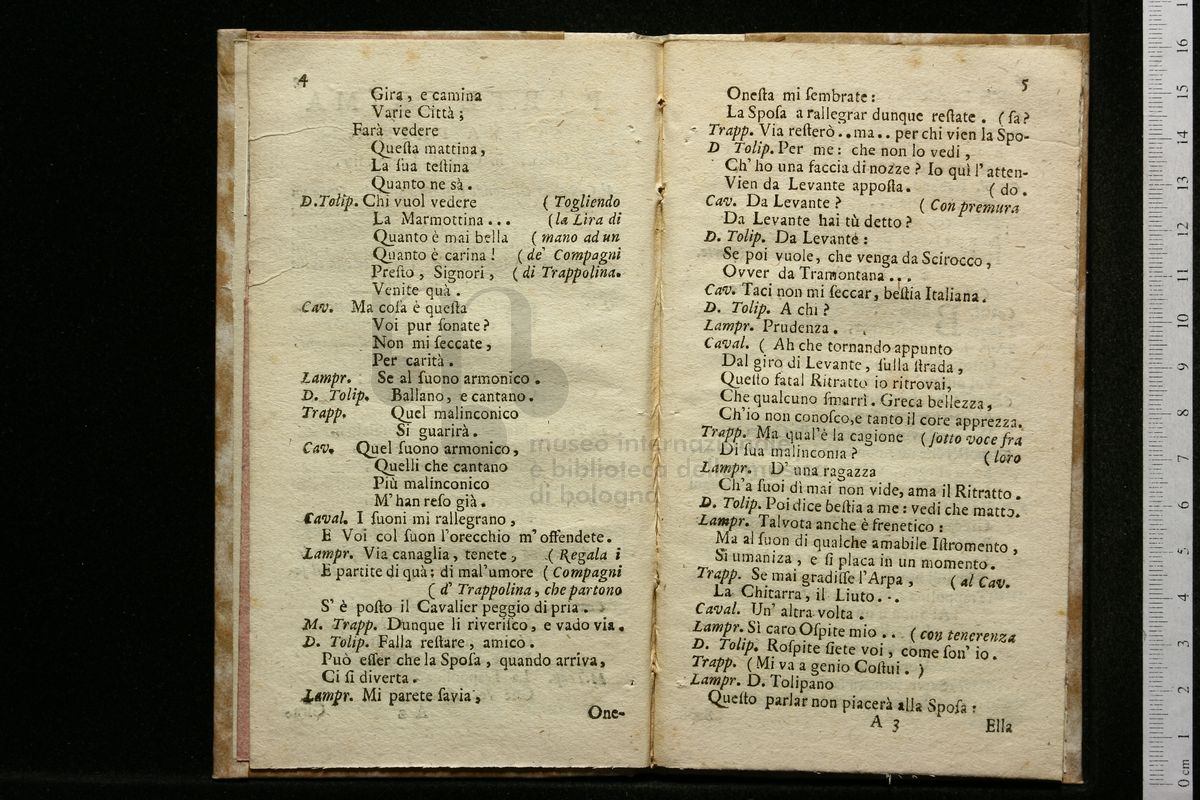 4
Gira, e camina
Varie Città;
Farà vedere
Queſta mattina,
La ſua teſtina
Quanto ne sà.
D.Tolip. Chi vuol vedere ( Togliendo
La Marmottina... (la Lira di
Quanto è mai bella ( mano ad un
Quanto è carina! ( de' Compagni
Preſto, Signori, ( di Trappolina.
Venite quà.
Cav. Ma coſa è queſta
Voi pur ſonate?
Non mi ſeccate,
Per carità.
Lampr. Se al ſuono armonico.
D. Tolip. Ballano, e cantano.
Trapp. Quel malinconico
Si guarirà.
Cav. Quel ſuono armonico,
Quelli che cantano
Più malinconico
M'han reſo già.
Caval. I ſuoni mi rallegrano,
E Voi col ſuon l'orecchio m'offendete.
Lampr. Via canaglia, tenete, ( Regala i
E partite di quà: di mal'umore ( Compagni
( d' Trappolina, che partono
S' è poſto il Cavalier peggio di pria.
M. Trapp. Dunque li riveriſco, e vado via.
D. Tolip. Falla reſtare, amico.
Può eſſer che la Spoſa, quando arriva,
Ci ſi diverta.
Lampr. Mi parete ſavia,
One-
5
Oneſta mi ſembrate:
La Spoſa a rallegrar dunque reſtate. ( ſa?
Trapp. Via reſterò..ma.. per chi vien la Spo-
D Tolip. Per me: che non lo vedi,
Ch' ho una faccia di nozze? Io quì l' atten-
Vien da Levante appoſta. ( do.
Cav. Da Levante? ( Con premura
Da Levante hai tù detto?
D. Tolip. Da Levante:
Se poi vuole, che venga da Scirocco,
Ovver da Tramontana...
Cav. Taci non mi ſeccar, beſtia Italiana.
D. Tolip. A chi?
Lampr. Prudenza.
Caval. ( Ah che tornando appunto
Dal giro di Levante, ſulla ſtrada,
Queſto fatal Ritratto io ritrovai,
Che qualcuno ſmarrì. Greca bellezza,
Ch'io non conoſco, e tanto il core apprezza.
Trapp. Ma qual'è la cagione ( ſotto voce fra
Di ſua malinconia? ( loro
Lampr. D' una ragazza
Ch'a ſuoi dì mai non vide, ama il Ritratto.
D. Tolip. Poi dice beſtia a me: vedi che matto.
Lampr. Talvota anche è frenetico:
Ma al ſuon di qualche amabile Iſtromento,
Si umaniza, e ſi placa in un momento.
Trapp. Se mai gradiſſe l'Arpa, ( al Cav.
La Chitarra, il Liuto...
Caval. Un' altra volta.
Lampr. Sì caro Oſpite mio.. ( con tenerenza
D. Tolip. Roſpite ſiete voi, come ſon' io.
Trapp. (Mi va a genio Coſtui.)
Lampr. D. Tolipano
Queſto parlar non piacerà alla Spoſa:
A 3
Ella
museo internazionale
e biblioteca della musica
di bologna
0 cm 1 2 3 4 5 6 7 8 9 10 11 12 13 14 15 16